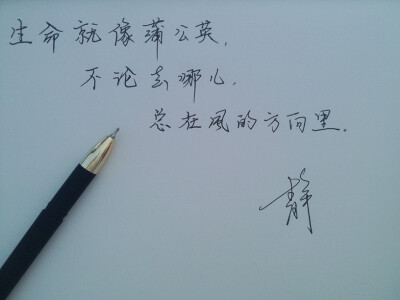 生命就像蒲公英,
不论去哪儿.
总在风的方向里.
静